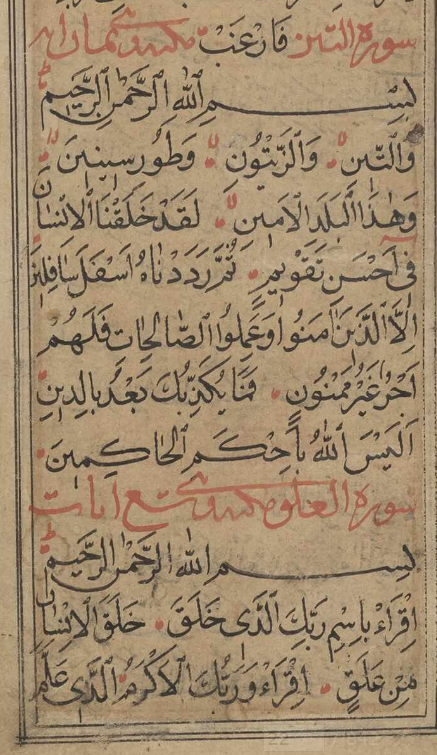 سورة التين فارغب مكية وهي ثمان ايات
بِسْمِ اللهِ الرَّحْمٰنِ الرَّحِيمِ
وَالتِّينِ وَالزَّيْتُونِ وَطُورِ سِينِينَ
وَهٰذَا الْبَلَدِ الْاَمِينِ لَقَدْ خَلَقْنَا الْاِنْسَانَ
فِى اَحْسَنِ تَقْوِيمٍ ثُمَّ رَدَدْنَاهُ اَسْفَلَ سَافِلِينَ
اِلَّا الَّذِينَ اٰمَنُوا وَعَمِلُوا الصَّالِحَاتِ فَلَهُمْ
اَجْرٌ غَيْرُ مَمْنُونٍ فَمَا يُكَذِّبُكَ بَعْدُ بِالدِّينِ
اَلَيْسَ اللهُ بِاَحْكَمِ الْحَاكِمِينَ
سورة العلق مكية وهي تسع ايات
بِسْمِ اللهِ الرَّحْمٰنِ الرَّحِيمِ
اِقْرَاْءْ بِاسْمِ رَبِّكَ الَّذِى خَلَقَ خَلَقَ الْاِنْسَانَ
مِنْ عَلَقٍ اِقْرَاْءْ وَرَبُّكَ الْاَكْرَمُ الَّذِى عَلَّمَ